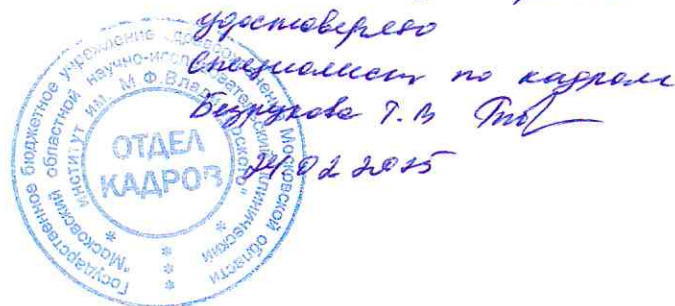 удостоверено
Специалист по кадрам
Безрукова Т. В
24 02 2025
Государственное бюджетное учреждение здравоохранения Московской области
"Московский областной научно-исследовательский клинический
институт им. М.Ф.Владимирского"
ОТДЕЛ
КАДРОВ